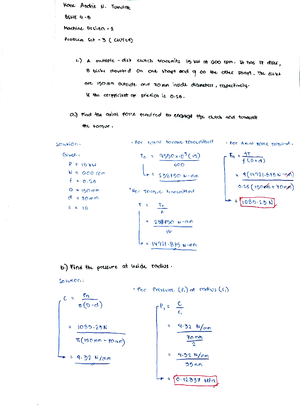 BSME 4-B
Machine Design - 2
Problem Set - 3 (Clutch)
1.) A multiple-disk clutch transmits 15 kW at 600 rpm. It has 17 disks,
8 disks mounted on one shaft and 9 on the other shaft. The disks
are 150 mm outside and 70 mm inside diameters, respectively.
If the coefficient of friction is 0.25.
a.) Find the axial force required to engage the clutch and transmit
the torque.
Solution:
Given:
P = 15 kW
N = 600 rpm
f = 0.25
D = 150 mm
d = 70 mm
n = 16
• For total torque transmitted
= 9550 × 10³ (15)
600
= 238750 N-mm
• For torque transmitted
n
= 238750 N-mm
16
= 14921.875 N-mm
• For axial force required
= 4(14921.875 N-mm)
0.25 (150 mm + 70 mm)
= 1085.23 N
b.) Find the pressure at inside radius.
Solution:
π(D-d)
= 1085.23 N
π(150 mm - 70 mm)
= 4.32 N/mm
• For pressure (P₁) at radius (r₁)
= 4.32 N/mm
70 mm
2
= 4.32 N/mm
35 mm